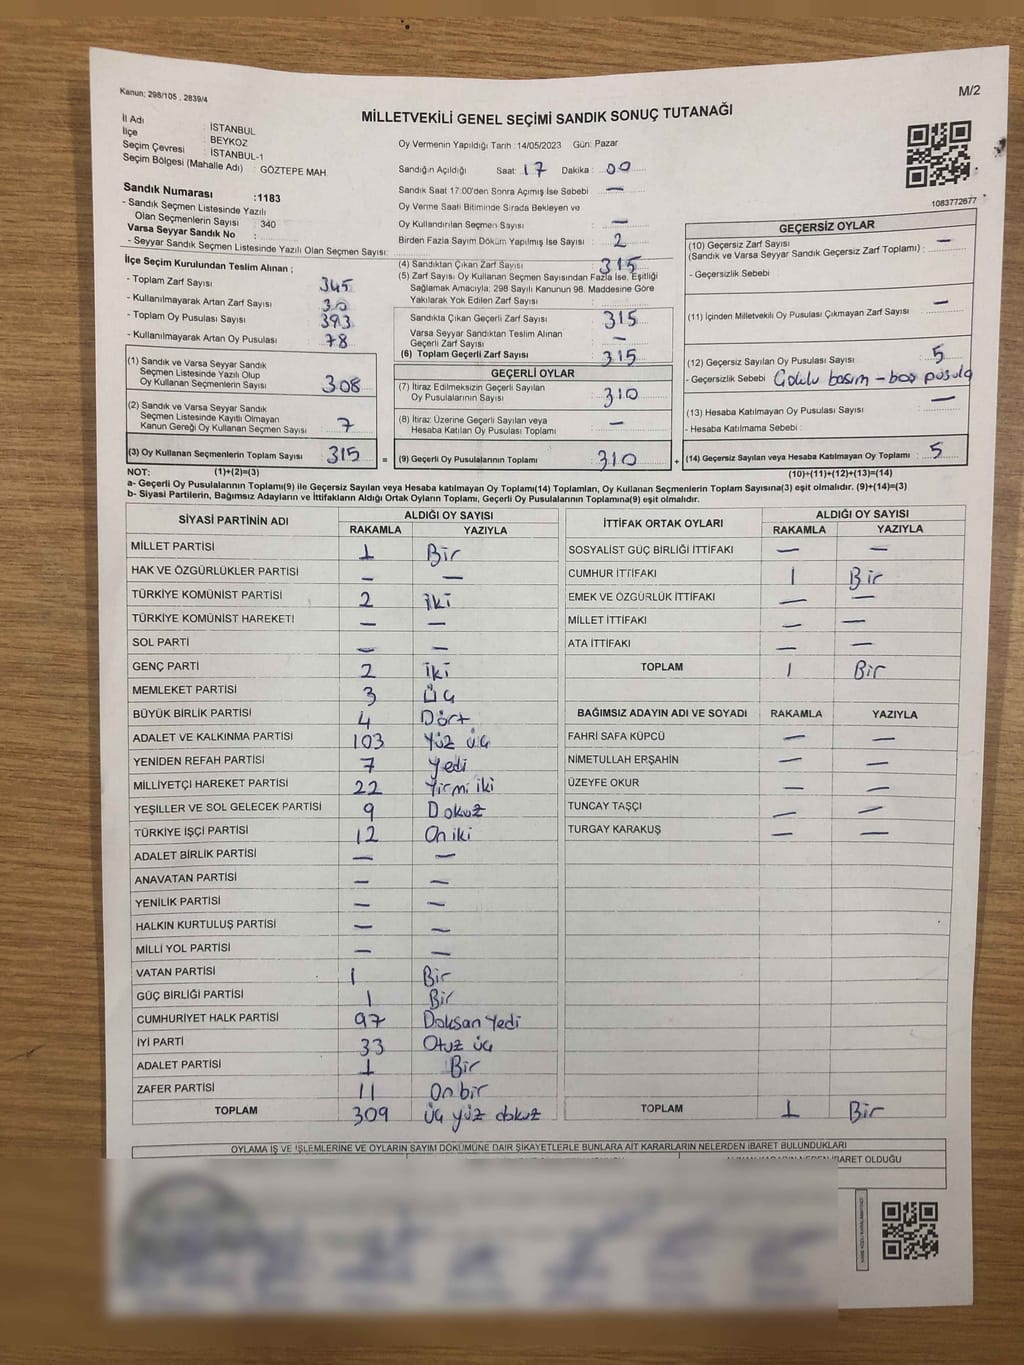 Kanun; 298/105 , 2839/4
M/2
MİLLETVEKİLİ GENEL SEÇİMİ SANDIK SONUÇ TUTANAĞI
İl Adı : İSTANBUL
İlçe : BEYKOZ
Seçim Çevresi : İSTANBUL-1
Seçim Bölgesi (Mahalle Adı) : GÖZTEPE MAH.
Sandık Numarası :1183
- Sandık Seçmen Listesinde Yazılı
Olan Seçmenlerin Sayısı : 340
Varsa Seyyar Sandık No :
- Seyyar Sandık Seçmen Listesinde Yazılı Olan Seçmen Sayısı:
Oy Vermenin Yapıldığı Tarih : 14/05/2023 Gün: Pazar
Sandığın Açıldığı Saat : 17 Dakika : 00
Sandık Saat 17:00'den Sonra Açımış İse Sebebi : —
Oy Verme Saati Bitiminde Sırada Bekleyen ve
Oy Kullandırılan Seçmen Sayısı : —
Birden Fazla Sayım Döküm Yapılmış İse Sayısı : 2
1083772677
İlçe Seçim Kurulundan Teslim Alınan ;
- Toplam Zarf Sayısı : 345
- Kullanılmayarak Artan Zarf Sayısı : 30
- Toplam Oy Pusulası Sayısı : 393
- Kullanılmayarak Artan Oy Pusulası : 78
(1) Sandık ve Varsa Seyyar Sandık
Seçmen Listesinde Yazılı Olup
Oy Kullanan Seçmenlerin Sayısı : 308
(2) Sandık ve Varsa Seyyar Sandık
Seçmen Listesinde Kayıtlı Olmayan
Kanun Gereği Oy Kullanan Seçmen Sayısı : 7
(3) Oy Kullanan Seçmenlerin Toplam Sayısı : 315 =
(4) Sandıktan Çıkan Zarf Sayısı : 315
(5) Zarf Sayısı Oy Kullanan Seçmen Sayısından Fazla İse, Eşitliği
Sağlamak Amacıyla; 298 Sayılı Kanunun 98. Maddesine Göre
Yakılarak Yok Edilen Zarf Sayısı :
Sandıkta Çıkan Geçerli Zarf Sayısı : 315
Varsa Seyyar Sandıktan Teslim Alınan
Geçerli Zarf Sayısı : —
(6) Toplam Geçerli Zarf Sayısı : 315
GEÇERLİ OYLAR
(7) İtiraz Edilmeksizin Geçerli Sayılan
Oy Pusulalarının Sayısı : 310
(8) İtiraz Üzerine Geçerli Sayılan veya
Hesaba Katılan Oy Pusulası Toplamı : —
(9) Geçerli Oy Pusulalarının Toplamı : 310 +
GEÇERSİZ OYLAR
(10) Geçersiz Zarf Sayısı
(Sandık ve Varsa Seyyar Sandık Geçersiz Zarf Toplamı) : —
- Geçersizlik Sebebi
(11) İçinden Milletvekili Oy Pusulası Çıkmayan Zarf Sayısı : —
(12) Geçersiz Sayılan Oy Pusulası Sayısı : 5
- Geçersizlik Sebebi : Çoklu basım – boş pusula
(13) Hesaba Katılmayan Oy Pusulası Sayısı : —
- Hesaba Katılmama Sebebi :
(14) Geçersiz Sayılan veya Hesaba Katılmayan Oy Toplamı : 5
NOT: (1)+(2)=(3) (10)+(11)+(12)+(13)=(14)
a- Geçerli Oy Pusulalarının Toplamı(9) ile Geçersiz Sayılan veya Hesaba katılmayan Oy Toplamı(14) Toplamları, Oy Kullanan Seçmenlerin Toplam Sayısına(3) eşit olmalıdır. (9)+(14)=(3)
b- Siyasi Partilerin, Bağımsız Adayların ve İttifakların Aldığı Ortak Oyların Toplamı, Geçerli Oy Pusulalarının Toplamına(9) eşit olmalıdır.
SİYASİ PARTİNİN ADI ALDIĞI OY SAYISI
RAKAMLA YAZIYLA
MİLLET PARTİSİ 1 Bir
HAK VE ÖZGÜRLÜKLER PARTİSİ — —
TÜRKİYE KOMÜNİST PARTİSİ 2 iki
TÜRKİYE KOMÜNİST HAREKETİ — —
SOL PARTİ — —
GENÇ PARTİ 2 iki
MEMLEKET PARTİSİ 3 üç
BÜYÜK BİRLİK PARTİSİ 4 Dört
ADALET VE KALKINMA PARTİSİ 103 Yüz üç
YENİDEN REFAH PARTİSİ 7 Yedi
MİLLİYETÇİ HAREKET PARTİSİ 22 Yirmi iki
YEŞİLLER VE SOL GELECEK PARTİSİ 9 Dokuz
TÜRKİYE İŞÇİ PARTİSİ 12 On iki
ADALET BİRLİK PARTİSİ — —
ANAVATAN PARTİSİ — —
YENİLİK PARTİSİ — —
HALKIN KURTULUŞ PARTİSİ — —
MİLLİ YOL PARTİSİ — —
VATAN PARTİSİ 1 Bir
GÜÇ BİRLİĞİ PARTİSİ 1 Bir
CUMHURİYET HALK PARTİSİ 97 Doksan Yedi
İYİ PARTİ 33 Otuz üç
ADALET PARTİSİ 1 Bir
ZAFER PARTİSİ 11 On bir
TOPLAM 309 üç yüz dokuz
İTTİFAK ORTAK OYLARI ALDIĞI OY SAYISI
RAKAMLA YAZIYLA
SOSYALİST GÜÇ BİRLİĞİ İTTİFAKI — —
CUMHUR İTTİFAKI 1 Bir
EMEK VE ÖZGÜRLÜK İTTİFAKI — —
MİLLET İTTİFAKI — —
ATA İTTİFAKI — —
TOPLAM 1 Bir
BAĞIMSIZ ADAYIN ADI VE SOYADI RAKAMLA YAZIYLA
FAHRİ SAFA KÜPCÜ — —
NİMETULLAH ERŞAHİN — —
ÜZEYFE OKUR — —
TUNCAY TAŞÇI — —
TURGAY KARAKUŞ — —
TOPLAM 1 Bir
OYLAMA İŞ VE İŞLEMLERİNE VE OYLARIN SAYIM DÖKÜMÜNE DAİR ŞİKAYETLERLE BUNLARA AİT KARARLARIN NELERDEN İBARET BULUNDUKLARI
İBARET OLDUĞU